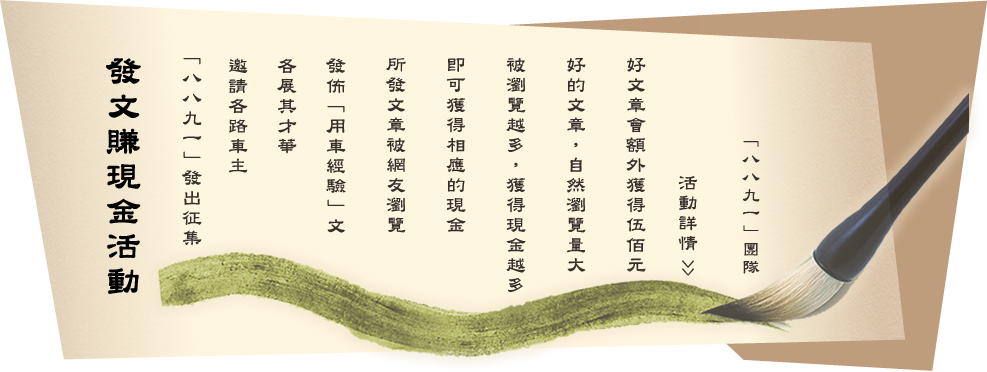 發文賺現金活動
「八八九一」發出征集
邀請各路車主
各展其才華
發佈「用車經驗」文
所發文章被網友瀏覽
即可獲得相應的現金
被瀏覽越多，獲得現金越多
好的文章，自然瀏覽量大
好文章會額外獲得伍佰元
活動詳情>>
「八八九一」團隊